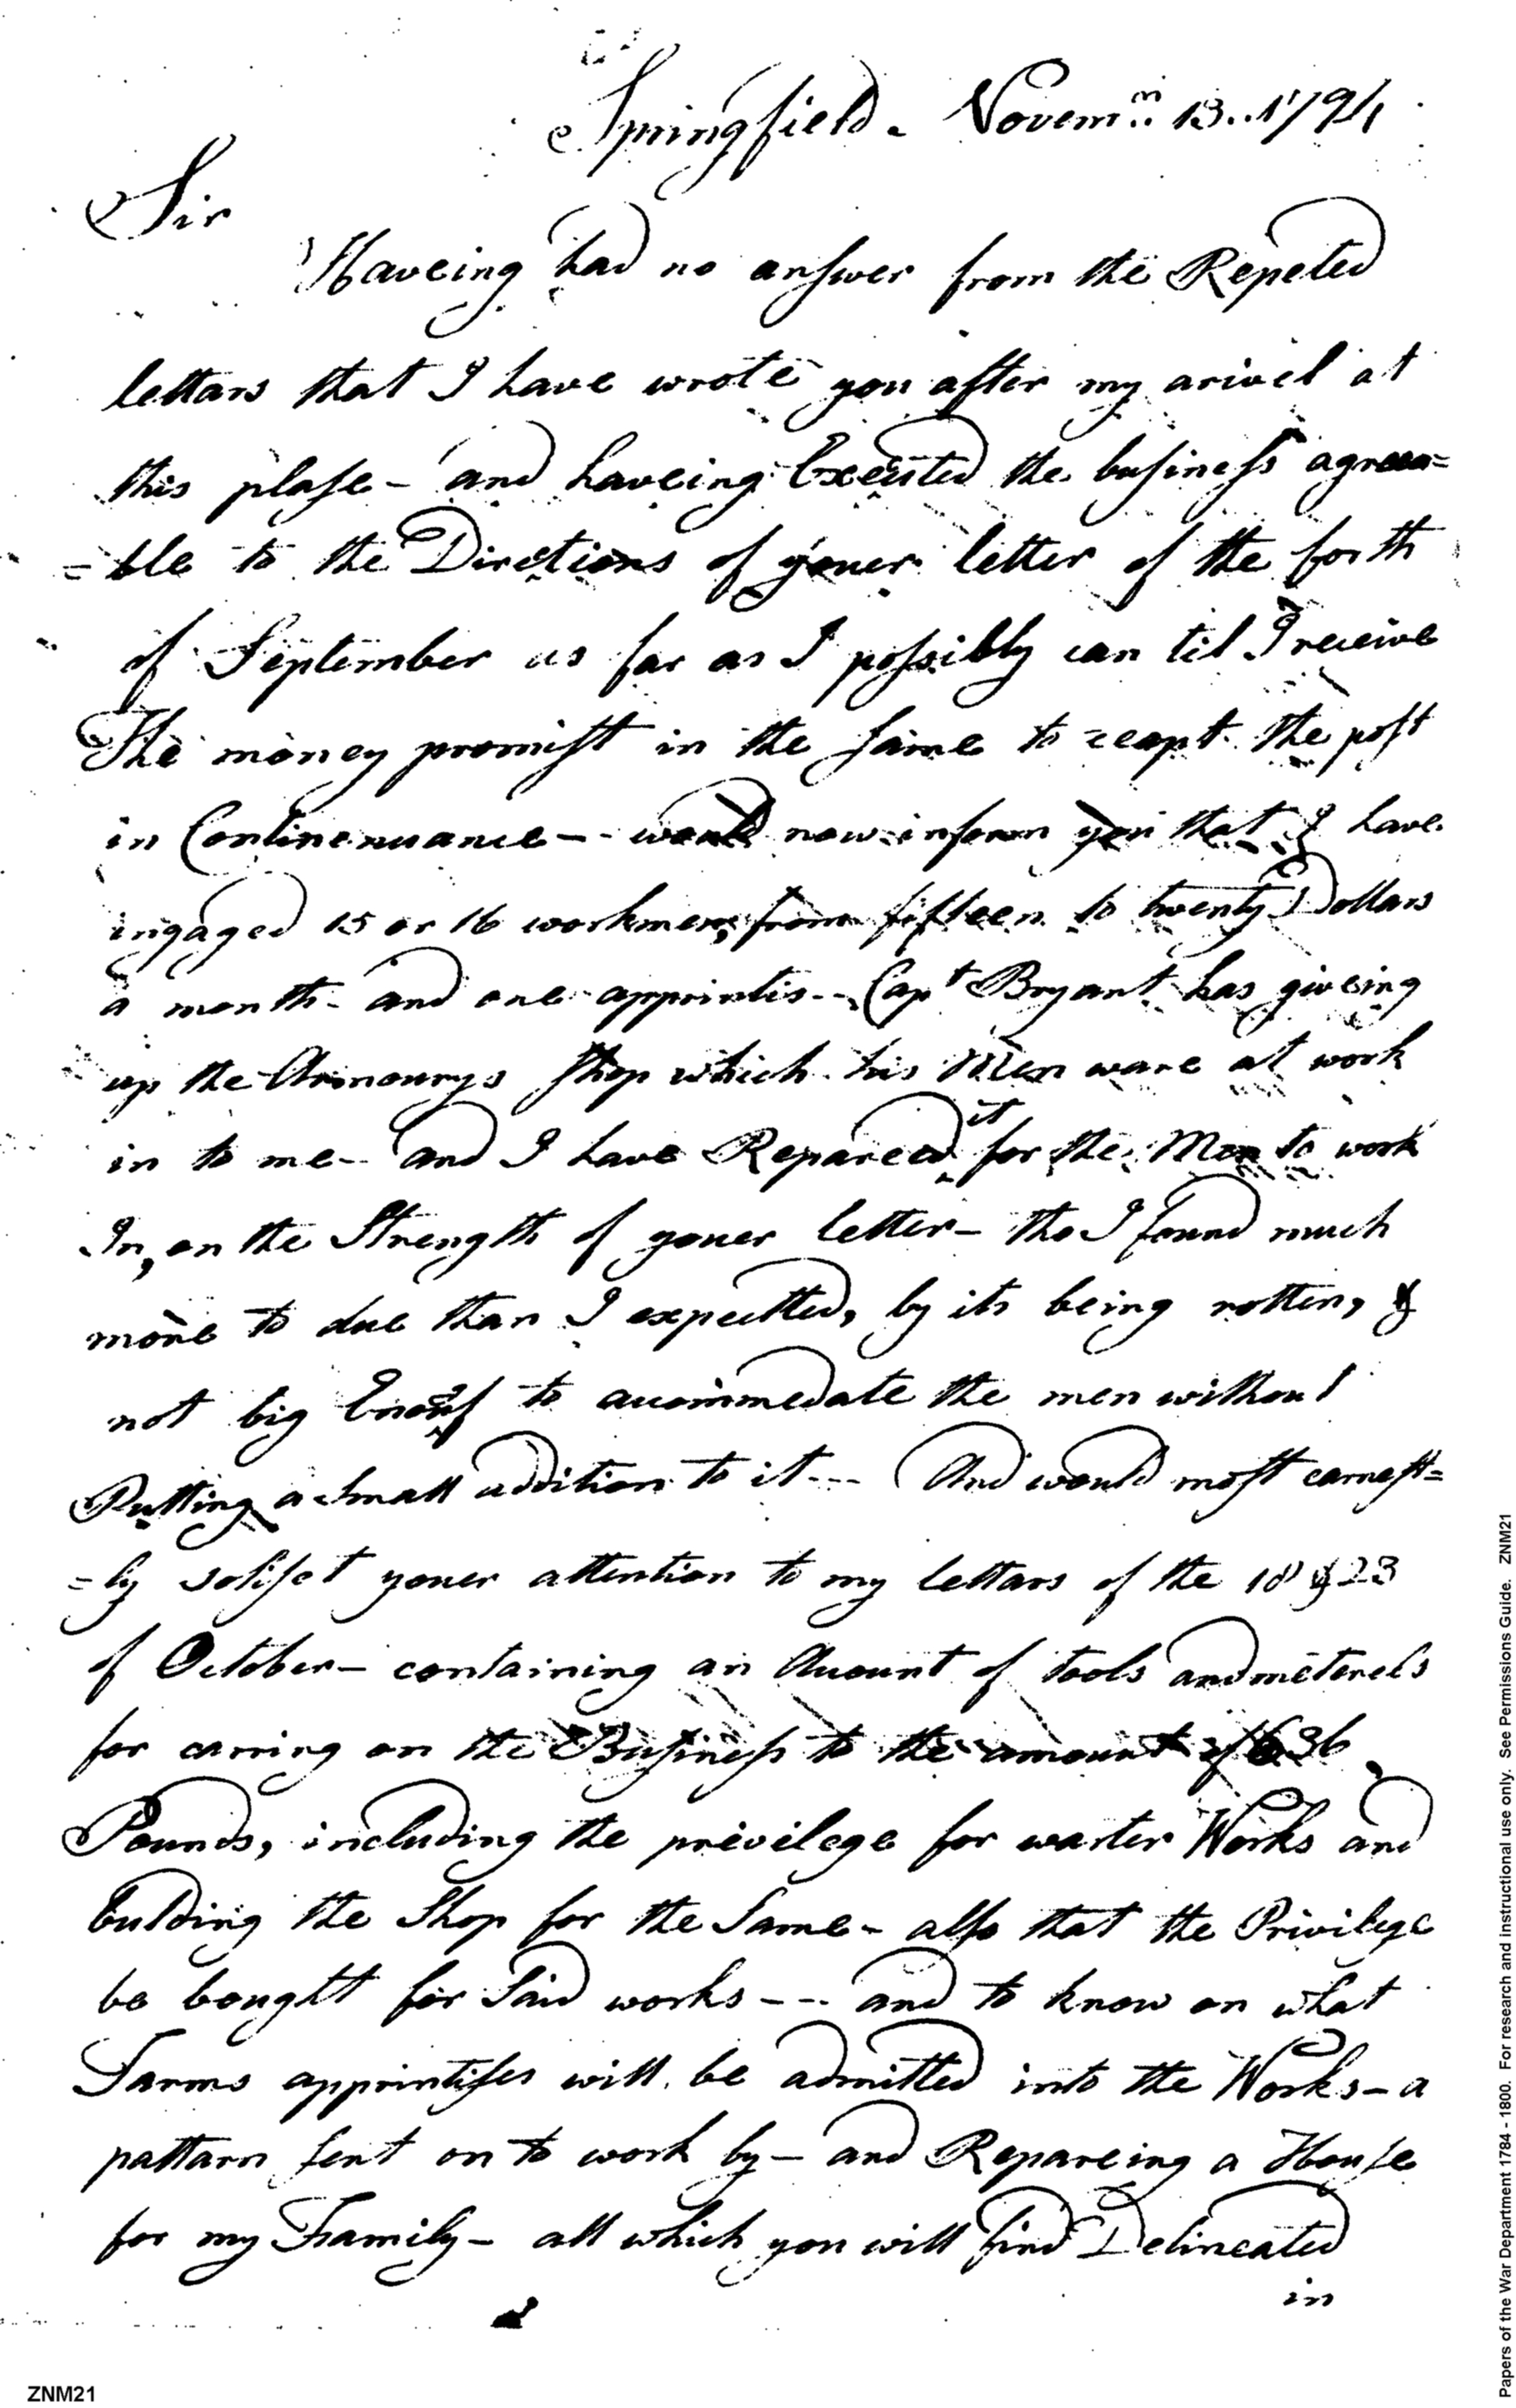 Springfield - Novem.. 13.. 1794
Sir
Haveing had no answer from the Repeted
lettars that I have wrote you after my arivel at
this plase - and haveing Executed the business agreea=
=ble to the Directions of youer letter of the forth
of September as far as I possibly can til I receive
The money promist in the same to cept the post
in Continenuance -- would now inform you that I have
ingaged 15 or 16 workmen, from fifteen to twenty Dollars
a month - and one apprintis -- Capt Bryant has giveing
up the Armourys shop which his Men ware at work
in to me -- and I have Repareed it for the Men to work
In, on the Strength of youer letter - tho I found much
more to due than I expectted, by its being rotten, &
not big Enouf to accommedate the men without
Putting a small addition to it --- And would most earnest=
=ly soliset youer attention to my lettars of the 18 & 23
of October - containing an Acount of tools and meterels
for carring on the Business to the amount of 636
Pounds, including the privilege for warter Works and
bulding the Shop for the Same - also that the Privilege
be bought for Said works --- and to know on what
Tarms apprintises will be admitted into the Works - a
pattarn sent on to work by - and Repareing a House
for my Family - all which you will find Delineated
in
ZNM21
Papers of the War Department 1784 - 1800. For research and instructional use only. See Permissions Guide. ZNM21